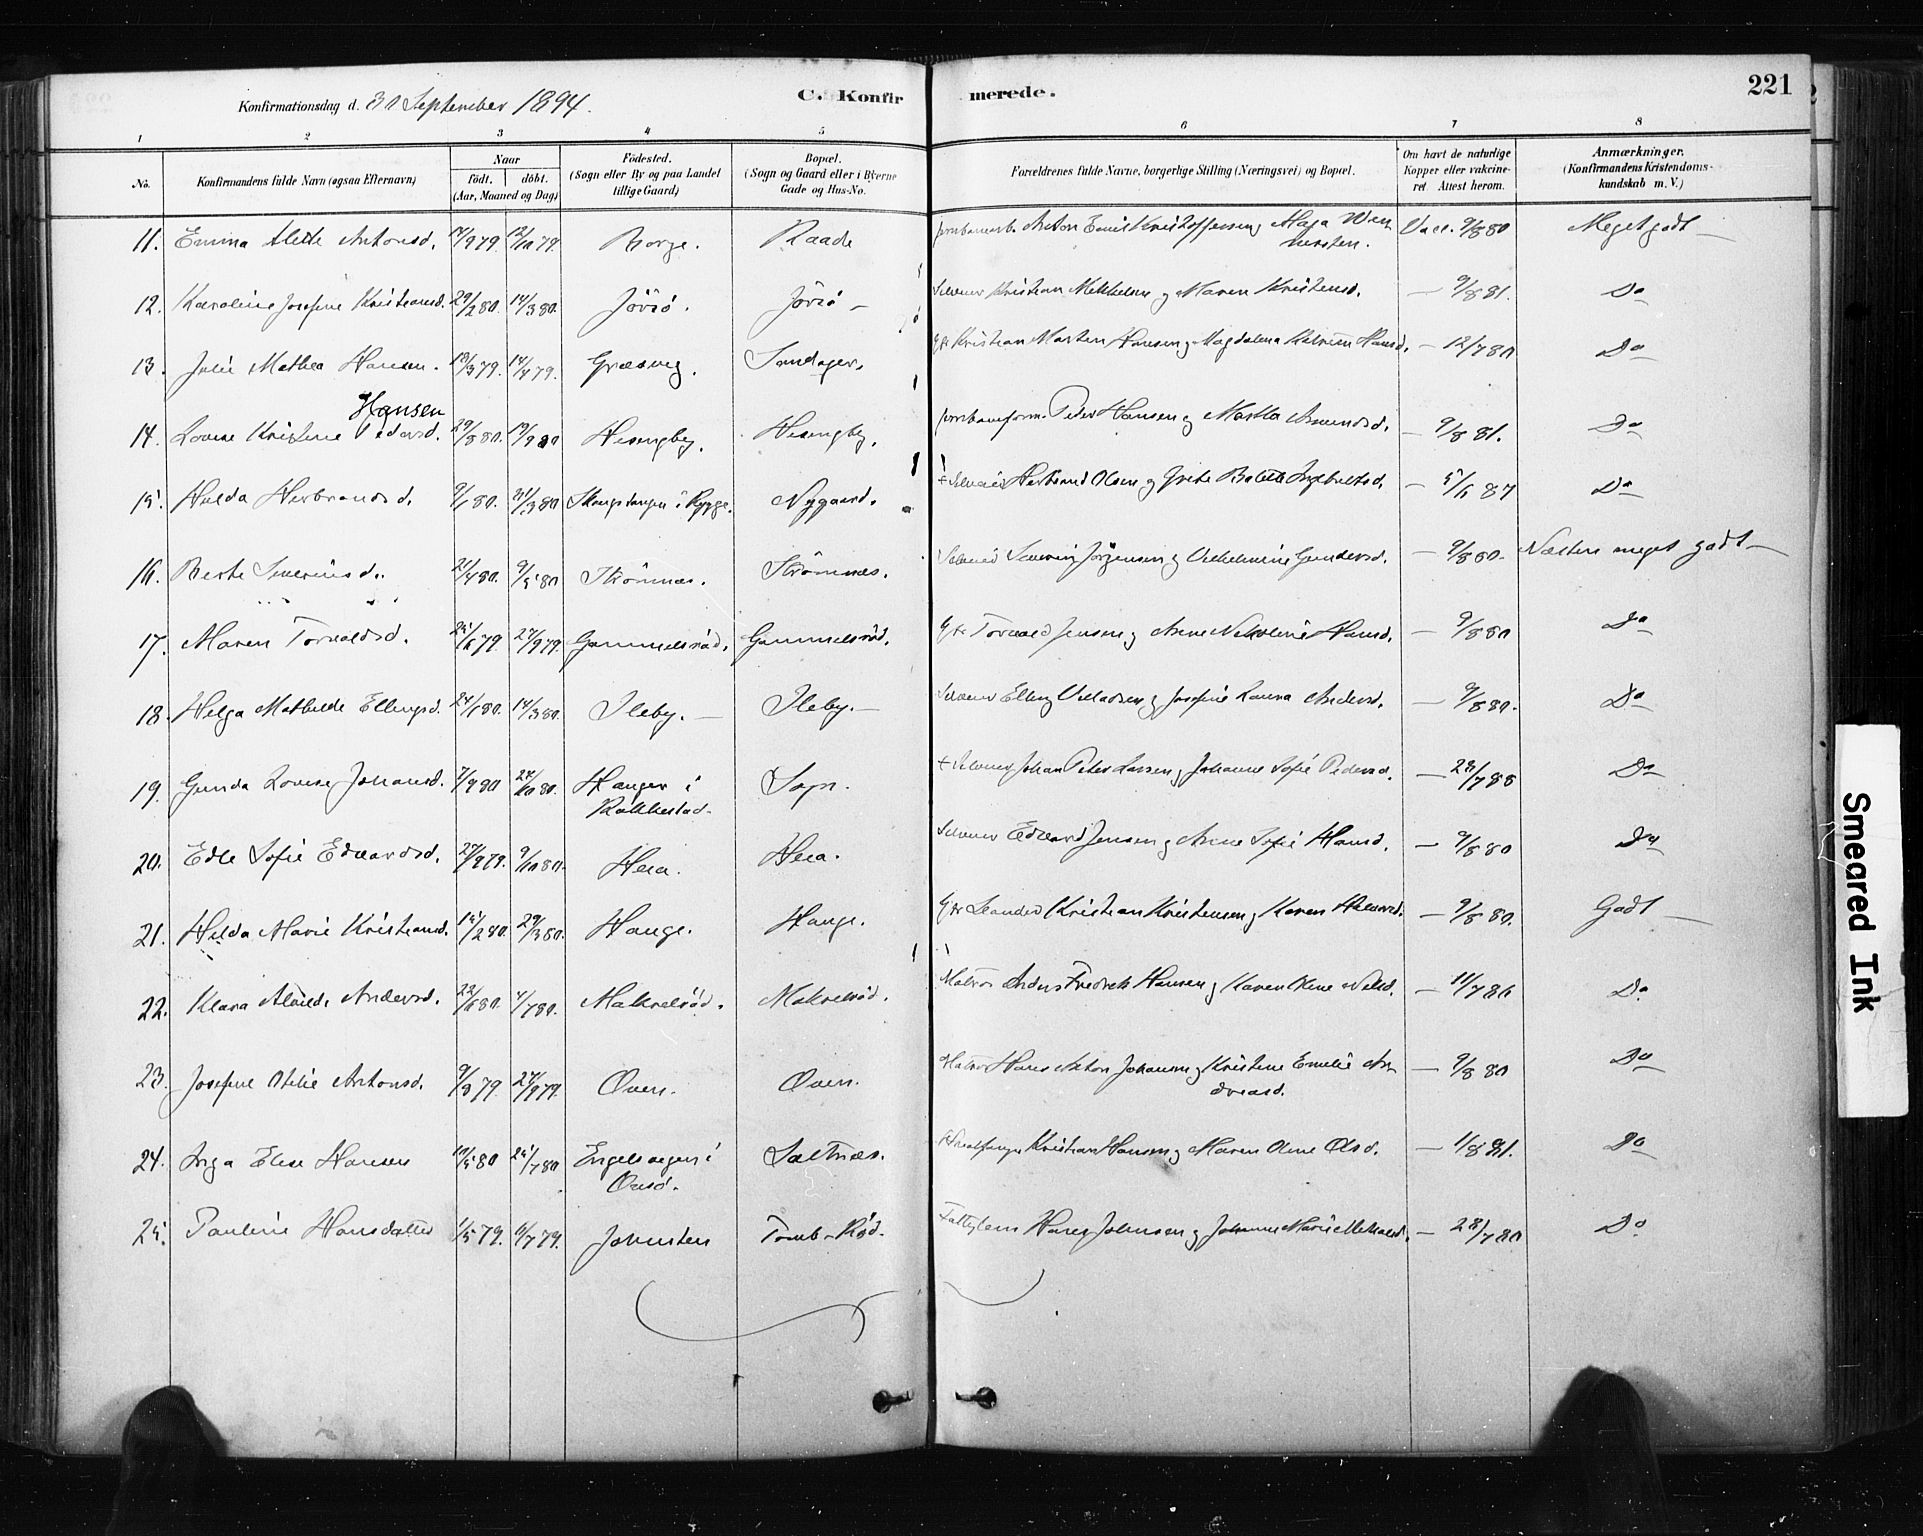 Konfirmationsdag d. 30 September 1894.
C. Konfirmerede.
221
1 2 3 4 5 6 7 8
No.
Konfirmandens fulde Navn (ogsaa Efternavn)
Naar
födt. döbt.
(Aar, Maaned og Dag)
Födested.
(Sogn eller By og paa Landet
tillige Gaard)
Bopæl.
(Sogn og Gaard eller i Byerne
Gade og Hus-No.
Forældrenes fulde Navne, borgerlige Stilling (Næringsvei) og Bopæl.
Om havt de naturlige
Kopper eller vakcine-
ret. Attest herom.
Anmærkninger.
(Konfirmandens Kristendoms-
kundskab m. V.)
11. Emma Alette Antonsd. 12/10 79. Borge. Raade Anton Emil Kristoffersen g Maja Vacc. 9/8 80 Meget godt —
12. Karoline Josefine Kristiansd. 29/2 80. 14/3 80. Jörsö. Jörsö — Kristian Mikkelsen g Maren Kristensd. — 9/8 81. Do
13. Julie Mathea Hansen. 18/3 79. 14/4 79. Græsvig. Sandager. Kristian Martin Hansen g Magdalena Katrine Hansd. — 12/7 80 Do
Hansen
14. Lovise Kristine Pedersd. 29/8 80. 19/9 80 Hesengby. Hesengby. Peter Hansen g Martha Amundsd. — 9/8 81. Do
15. Hulda Herbrandsd. 9/1 80. 31/3 80 i Rygge. Nygaard. Herbrand Olsen g Grete Bolette Ingebretsd. — 5/6 87 Do
16. Berte Severinsd. 21/4 80. 9/5 80 Strömnæs. Strömnæs. Severin Jörgensen g Vilhelmine Gundersd. — 9/8 80. Næsten meget godt —
17. Maren Torvaldsd. 25/6 79. 27/9 79. Gammelsröd. Gammelsröd. Torvald Jensen g Anne Nikoline Hansd. — 9/8 80 Do
18. Helga Mathilde Ellingsd. 24/1 80. 14/3 80. Ileby. — Ileby. — Elling g Josefine Laura Andersd. — 9/8 80. Do
19. Gunda Lovise Johansd. 7/9 80 24/10 80. Hauger i Sogn. Johan Peter Larsen g Johanne Sofie Pedersd. — 28/7 88 Do
Rakkestad.
20. Edle Sofie Edvardsd. 27/9 79. 9/10 80. Heia. Heia. Edvard Jensen g Anne Sofie Hansd. — 9/8 80 Do
21. Hilda Marie Kristiansd. 15/2 80. 29/3 80. Hauge. Hauge. Leander Kristian Kristensen g Karen — 9/8 80. Godt —
22. Klara Andersd. 22/6 80. 4/7 80. Makrelröd. Makrelröd. Matros Anders Fredrik Hansen g Karen — 11/7 86 Do
23. Josefine Otilie Antonsd. 9/8 79. 27/9 79. Oven. Oven. Matros Hans Anton Johansen g Kristine Emilie An
dreasd. — 9/8 80 Do
24. Inga Elise Hansen 10/5 80 25/7 80 Engelsvigen i Saltnæs. Kristian Hansen g Maren Oline Olsd. — 1/8 81. Do
Onsö.
25. Pauline Hansdatter 1/5 79. 6/7 79. Johnsten Tomb-Röd. Fattiglem Hans Johnsen g Johanne Marie — 28/7 80 Do
Smeared Ink